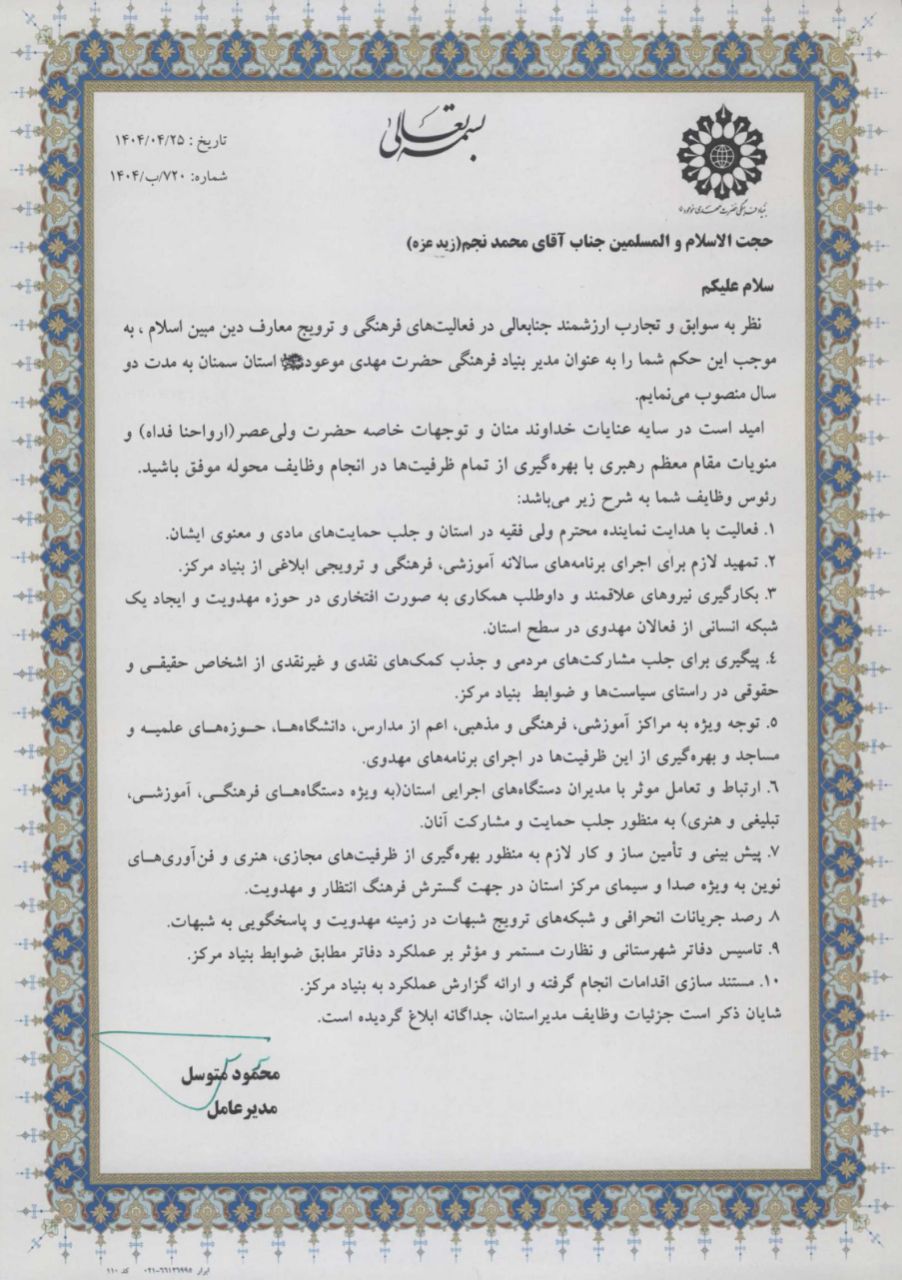 بسمه تعالی
تاریخ : ۱۴۰۴/۰۴/۲۵
شماره: ۷۲۰/ب/۱۴۰۴
بنیاد فرهنگی حضرت مهدی موعود
حجت الاسلام و المسلمین جناب آقای محمد نجم(زید عزه)
سلام علیکم
نظر به سوابق و تجارب ارزشمند جنابعالی در فعالیت‌های فرهنگی و ترویج معارف دین مبین اسلام ، به
موجب این حکم شما را به عنوان مدیر بنیاد فرهنگی حضرت مهدی موعود استان سمنان به مدت دو
سال منصوب می‌نمایم.
امید است در سایه عنایات خداوند منان و توجهات خاصه حضرت ولی‌عصر(ارواحنا فداه) و
منویات مقام معظم رهبری با بهره‌گیری از تمام ظرفیت‌ها در انجام وظایف محوله موفق باشید.
رئوس وظایف شما به شرح زیر می‌باشد:
۱. فعالیت با هدایت نماینده محترم ولی فقیه در استان و جلب حمایت‌های مادی و معنوی ایشان.
۲. تمهید لازم برای اجرای برنامه‌های سالانه آموزشی، فرهنگی و ترویجی ابلاغی از بنیاد مرکز.
۳. بکارگیری نیروهای علاقمند و داوطلب همکاری به صورت افتخاری در حوزه مهدویت و ایجاد یک
شبکه انسانی از فعالان مهدوی در سطح استان.
٤. پیگیری برای جلب مشارکت‌های مردمی و جذب کمک‌های نقدی و غیرنقدی از اشخاص حقیقی و
حقوقی در راستای سیاست‌ها و ضوابط بنیاد مرکز.
۵. توجه ویژه به مراکز آموزشی، فرهنگی و مذهبی، اعم از مدارس، دانشگاه‌ها، حوزه‌های علمیه و
مساجد و بهره‌گیری از این ظرفیت‌ها در اجرای برنامه‌های مهدوی.
٦. ارتباط و تعامل موثر با مدیران دستگاه‌های اجرایی استان(به ویژه دستگاه‌های فرهنگی، آموزشی،
تبلیغی و هنری) به منظور جلب حمایت و مشارکت آنان.
۷. پیش بینی و تأمین ساز و کار لازم به منظور بهره‌گیری از ظرفیت‌های مجازی، هنری و فن‌آوری‌های
نوین به ویژه صدا و سیمای مرکز استان در جهت گسترش فرهنگ انتظار و مهدویت.
۸. رصد جریانات انحرافی و شبکه‌های ترویج شبهات در زمینه مهدویت و پاسخگویی به شبهات.
۹. تاسیس دفاتر شهرستانی و نظارت مستمر و مؤثر بر عملکرد دفاتر مطابق ضوابط بنیاد مرکز.
۱۰. مستند سازی اقدامات انجام گرفته و ارائه گزارش عملکرد به بنیاد مرکز.
شایان ذکر است جزئیات وظایف مدیراستان، جداگانه ابلاغ گردیده است.
محمود متوسل
مدیرعامل
ابرار ۶۶۱۳۶۹۹۵-۰۲۱ کد ۱۱۰